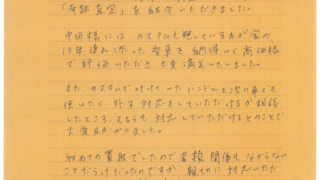 「奇跡査定」を紹介いただきました。
中田様には カスタムも施しているわが家の
13年連れ添った愛車を納得いく高価格
で評価いただき 大変満足いたしました。
また カスタムで付けていったハンドルも次の車でも
使いたく、外す対応をしていただけるか相談
したところ、もちろん対応していただけるとのことで
大変助かりました。
初めての買取でしたので 書類関係も分からない
ことだらけだったのですが 親切に対応いただ